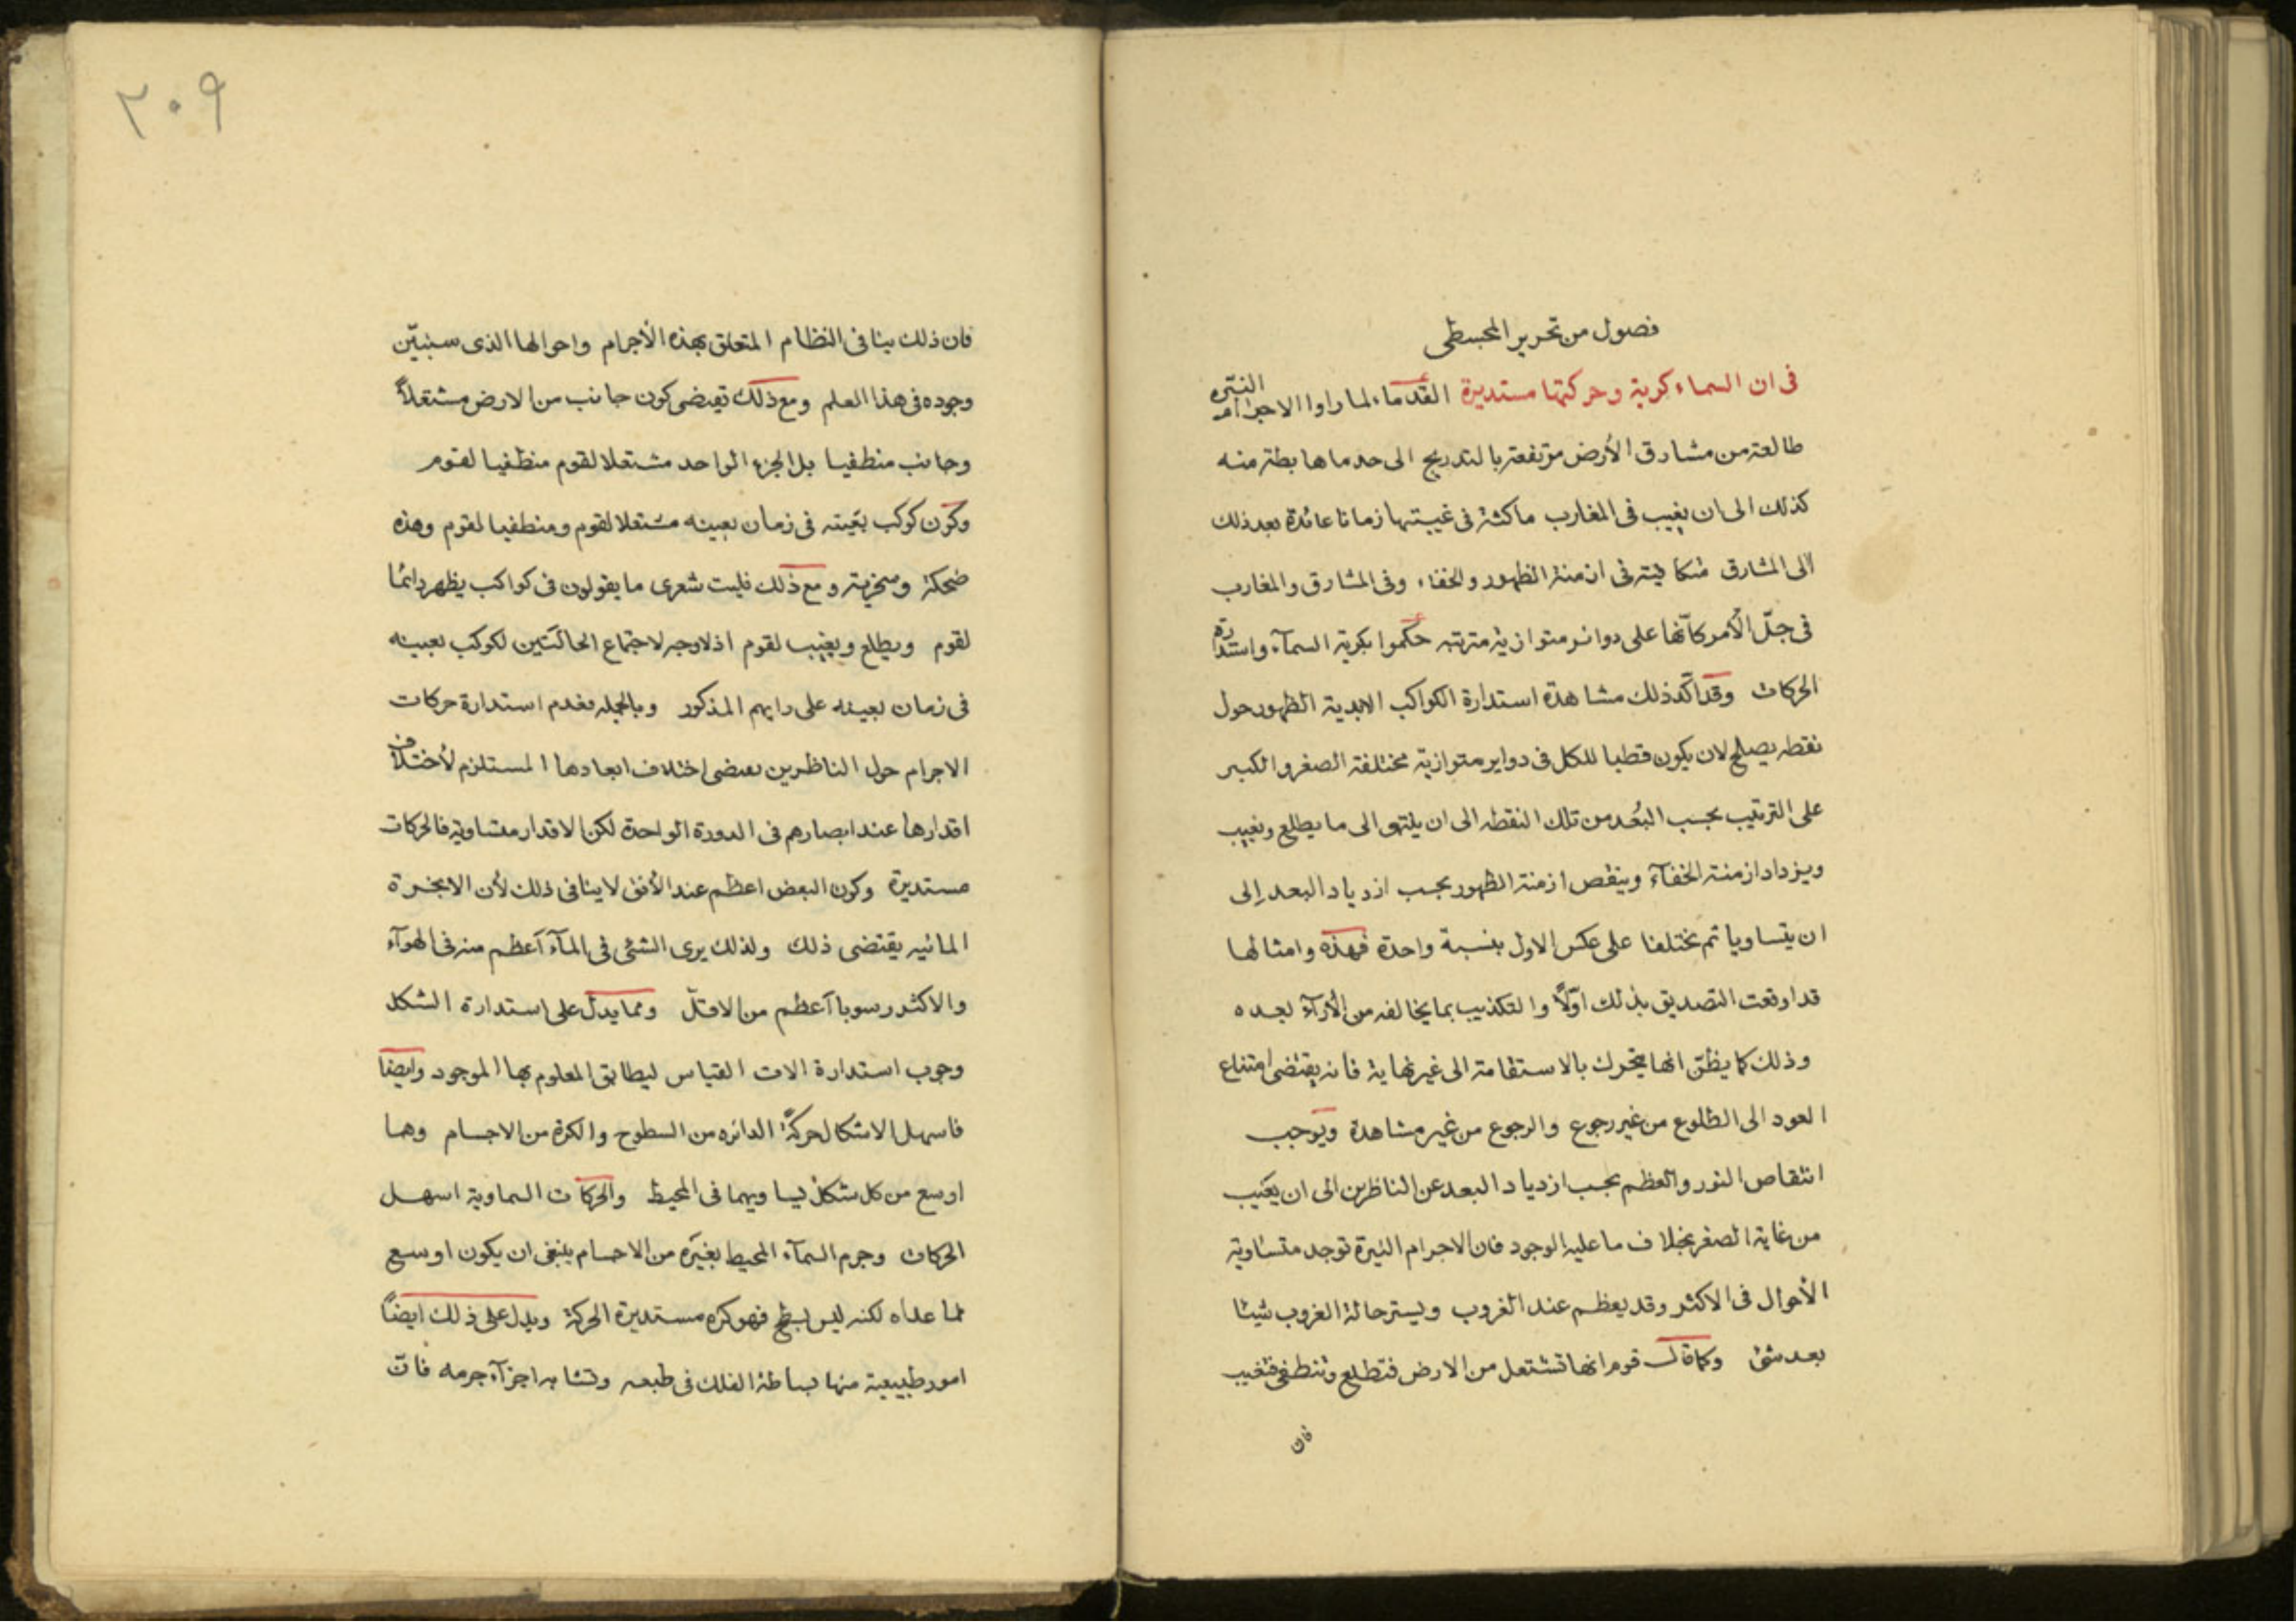 فصول من تحرير المجسطى
فى ان السماء كرية وحركتها مستديرة القدماء لما راوا الاجرام النيّره
طالعة من مشارق الأرض مرتفعة بالتدريج الى حد ما هابطة منه
كذلك الى ان يغيب فى المغارب ماكثة فى غيبتها زمانا عائدة بعد ذلك
الى المشارق متكافية فى ازمنة الظهور والخفاء وفى المشارق والمغارب
فى جلّ الأمر كانّها على دوائر متوازية مترتبه حكموا بكرية السمآء واستدارة
الحركات وقد اكّد ذلك مشاهدة استدارة الكواكب الابدية الظهور حول
نقطه يصلح لان يكون قطبا للكل فى دواير متوازية مختلفة الصغر والكبر
على الترتيب بحسب البُعد من تلك النقطه الى ان ينتهى الى ما يطلع ويغيب
ويزداد ازمنة الخفآء وينقص ازمنة الظهور بحسب ازدياد البعد إلى
ان يتساويا ثم يختلفا على عكس الاول بنسبة واحدة فهذه وامثالها
قد اوقعت التصديق بذلك اوّلاً والتكذيب بما يخالفه من الأرآء بعده
وذلك كما يظنّ انها يتحرك بالاستقامة الى غير نهاية فانه يقتضى امتناع
العود الى الطلوع من غير رجوع والرجوع من غير مشاهدة ويوجب
انتقاص النور والعظم بحسب ازدياد البعد عن الناظرين الى ان يغيب
من غاية الصغر بخلاف ما عليه الوجود فان الاجرام النيرة توجد متساوية
الأحوال فى الاكثر وقد يعظم عند الغروب ويستر حالة الغروب شيئا
بعد شئ وكما قال قوم انها تشتعل من الارض فتطلع وتنطفى فتغيب
فان
٢٠٩
فان ذلك ينافى النظام المتعلق بهذه الأجرام واحوالها الذى سنبيّن
وجوده فى هذا العلم ومع ذلك تقتضى كون جانب من الارض مشتعلاً
وجانب منطفيا بل الجزء الواحد مشتعلا لقوم منطفيا لقوم
وكون كوكب بعينه فى زمان بعينه مشتعلا لقوم ومنطفيا لقوم وهذه
ضحكة وسخرية ومع ذلك فليت شعرى ما يقولون فى كواكب يظهر دائما
لقوم ويطلع ويغيب لقوم اذ لا وجه لاجتماع الحالتين لكوكب بعينه
فى زمان بعينه على رايهم المذكور وبالجمله فعدم استدارة حركات
الاجرام حول الناظرين يقتضى اختلاف ابعادها المستلزم لأختلاف
اقدارها عند ابصارهم فى الدورة الواحدة لكن الاقدار متساوية فالحركات
مستديرة وكون البعض اعظم عند الأفق لا ينافى ذلك لأن الابخرة
المائيه يقتضى ذلك ولذلك يرى الشئ فى المآء آعظم منه فى الهوآء
والاكثر رسوبا آعظم من الاقلّ ومما يدل على استدارة الشكل
وجوب استدارة الات القياس ليطابق المعلوم بها الموجود وايضا
فاسهل الاشكال حركةً الدائره من السطوح والكرة من الاجسام وهما
اوسع من كل شكل يساويهما فى المحيط والحركات السماوية اسهل
الحركات وجرم السمآء المحيط بغيره من الاجسام ينبغى ان يكون اوسع
مما عداه لكنه ليس بسطح فهو كره مستديرة الحركة ويدل على ذلك ايضاً
امور طبيعية منها بساطة الفلك فى طبعه وتشابه اجزآء جرمه فانّ